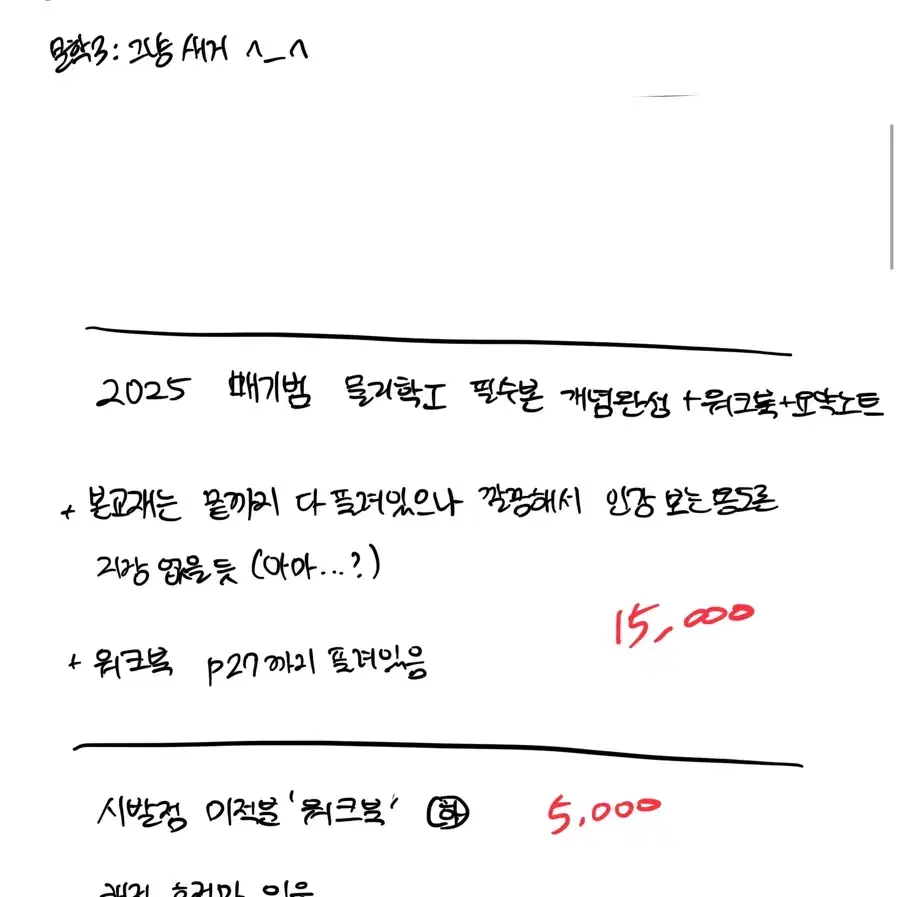 문학3: 그냥 새거 ^_^
2025 배기범 물리학I 필수본 개념완성 +워크북+요약노트
+ 본교재는 끝까지 다 풀려있으나 깔끔해서 인강 보는 용도론
지장 없을 듯 (아마...?)
15,000
+ 워크북 p27까지 풀려있음
시발점 이적분 '워크북' 하 5,000